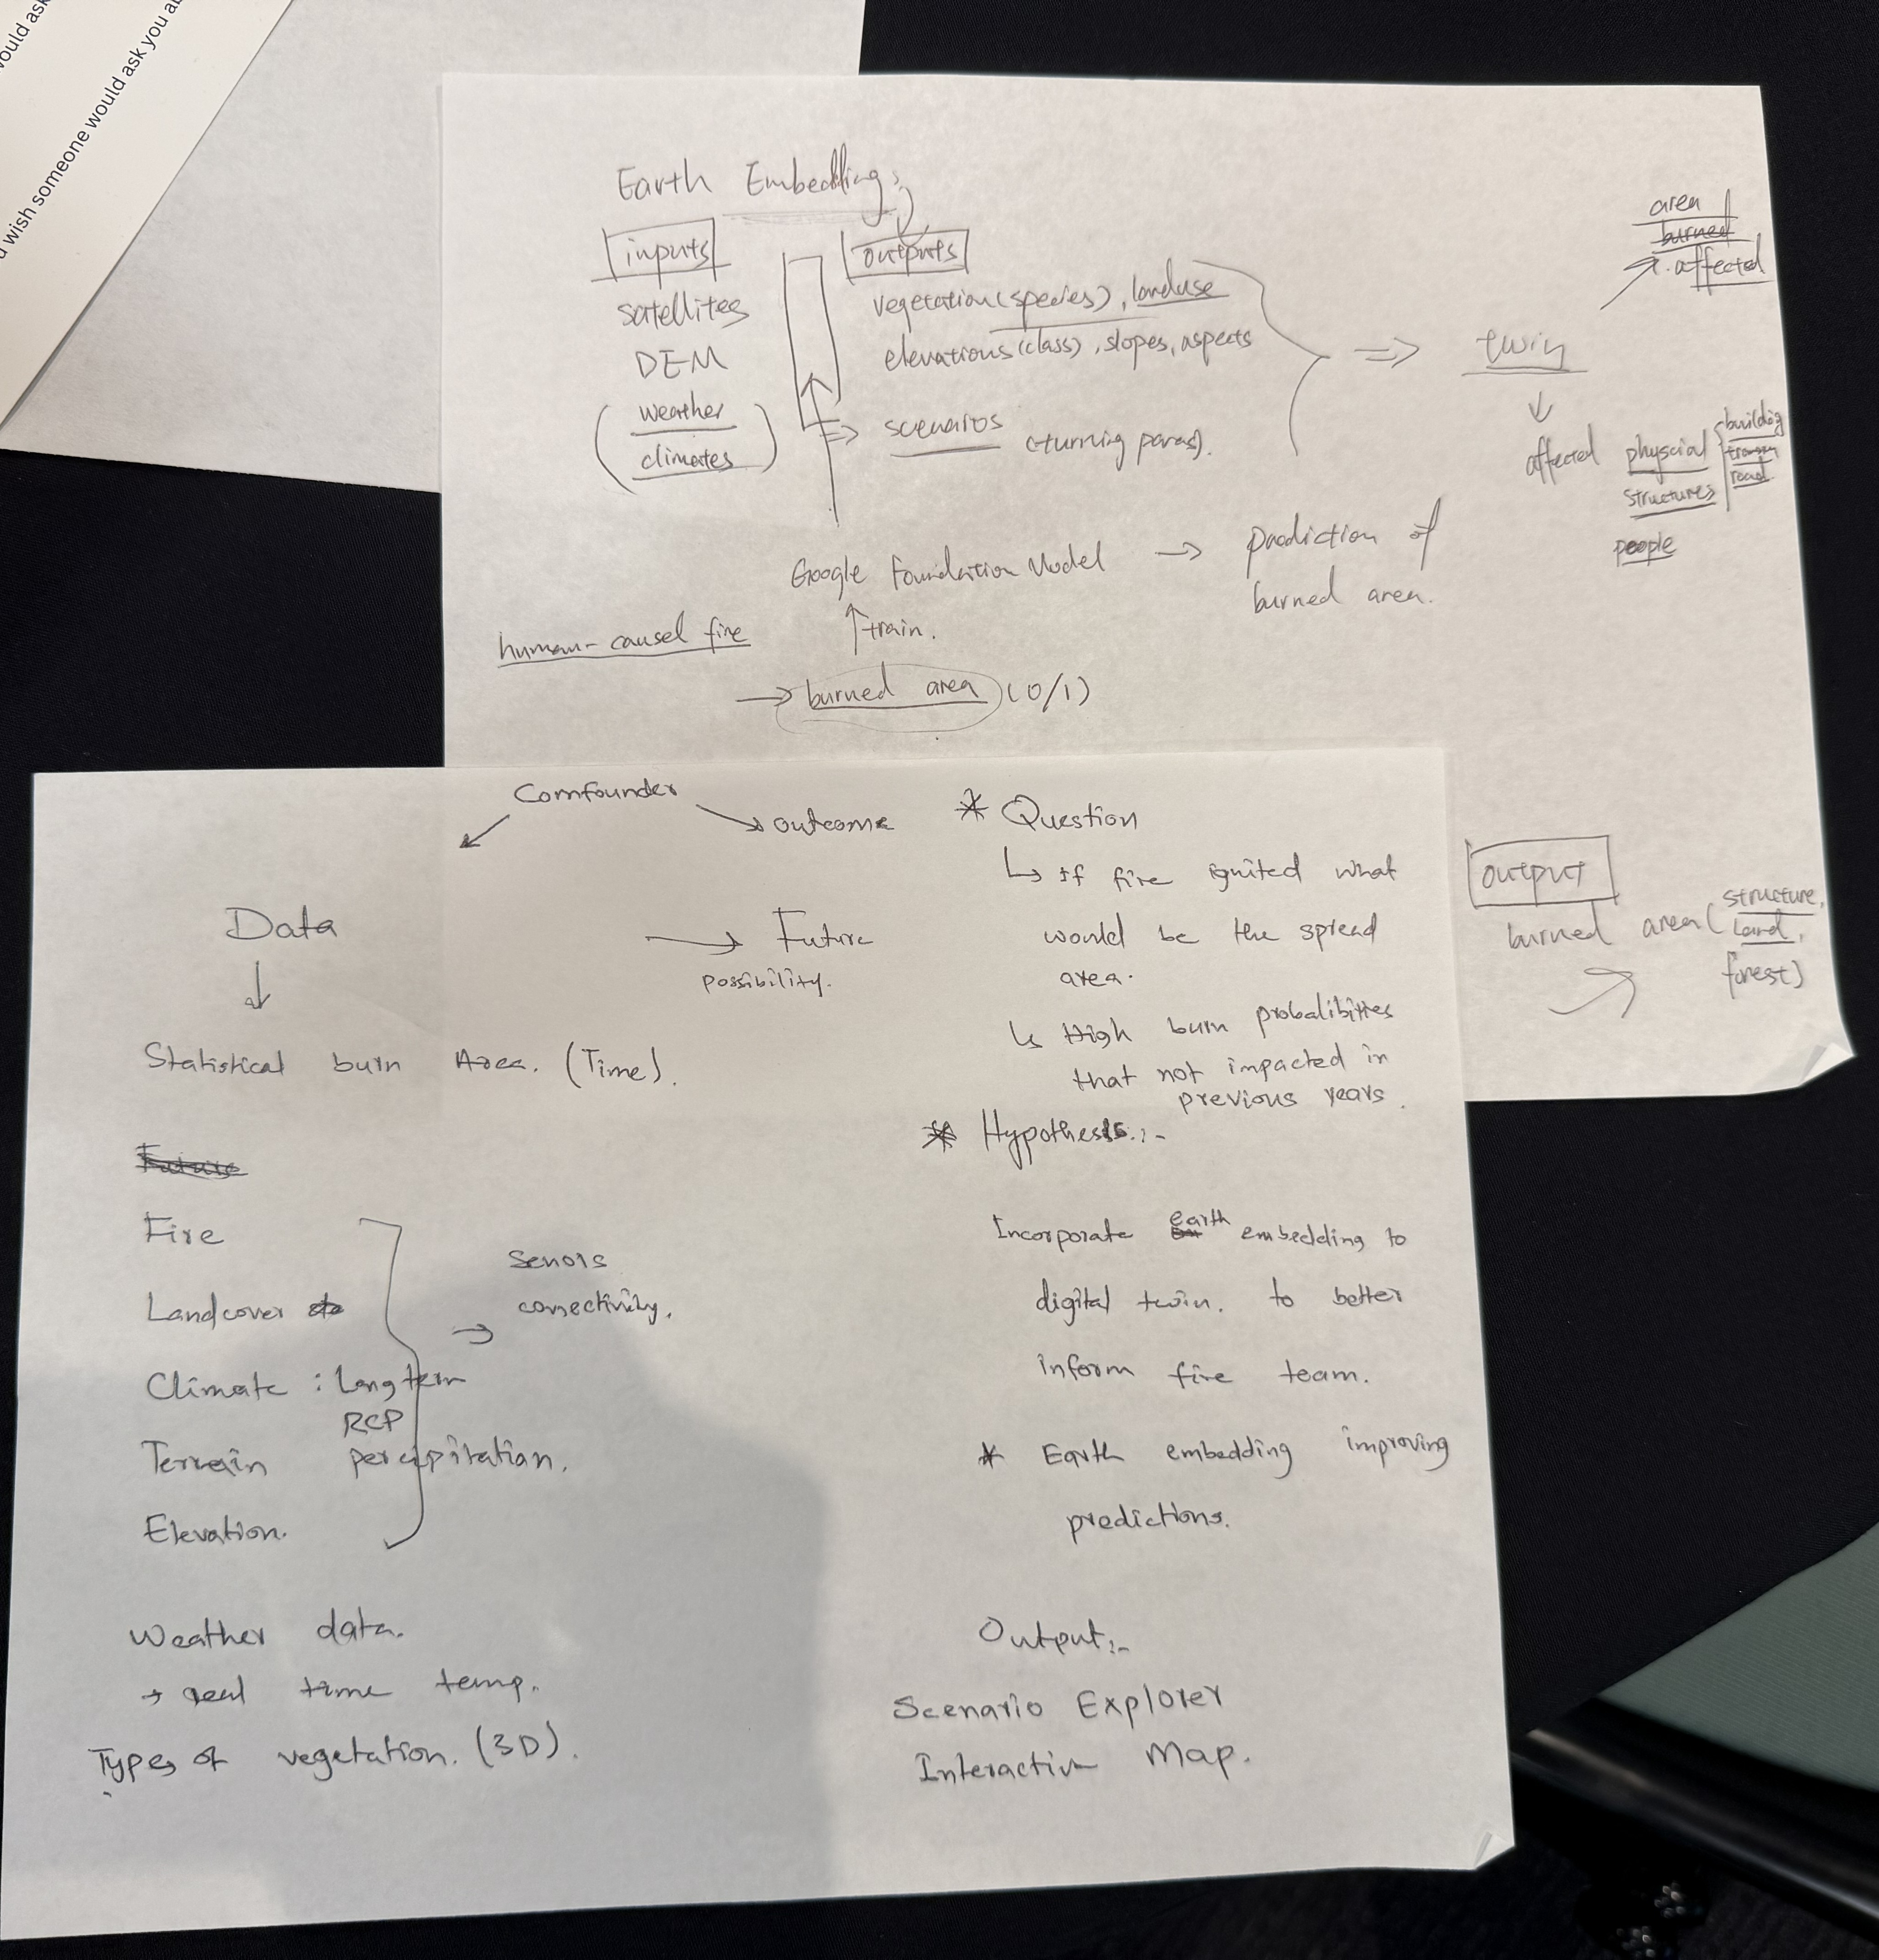 would ask
u wish someone would ask you a
Earth Embedding
inputs
satellites
DEM
weather
climates
outputs
vegetation(species), landuse
elevations(class), slopes, aspects
scenarios (turning paras).
twin
area
burned
affected
affected physcial structures
building
road
people
Google Foundation Model → prediction of
burned area.
↑train.
human-causel fire
→ burned area (0/1)
output
burned area (structure,
land,
forest)
Comfounder
outcome
Data
→ Future
possibility.
Statistical burn Area. (Time).
Future
Fire
Landcover
Climate : Long term
RCP
Terrain percipitation.
Elevation.
→ Senors
Weather data.
→ real time temp.
Types of vegetation. (3D).
* Question
↳ If fire ignited what
would be the spread
area.
↳ High burn probalibities
that not impacted in
previous years.
* Hypothesis:-
Incorporate earth embedding to
digital twin. to better
inform fire team.
* Earth embedding improving
predictions.
Output:-
Scenario Explorer
Interactive Map.